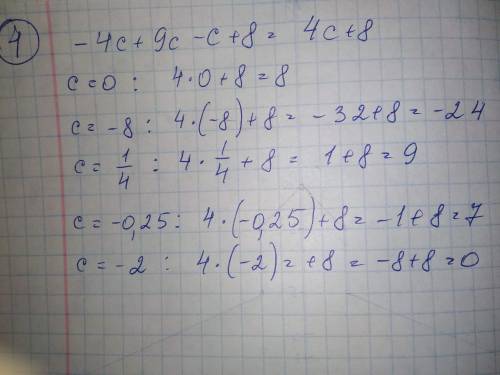 4 -4c+9c-c+8= 4c+8
c=0 : 4·0+8=8
c=-8 : 4·(-8)+8= -32+8=-24
c=1/4 : 4·1/4+8= 1+8=9
c=-0,25: 4·(-0,25)+8= -1+8=7
c=-2 : 4·(-2)=+8= -8+8=0